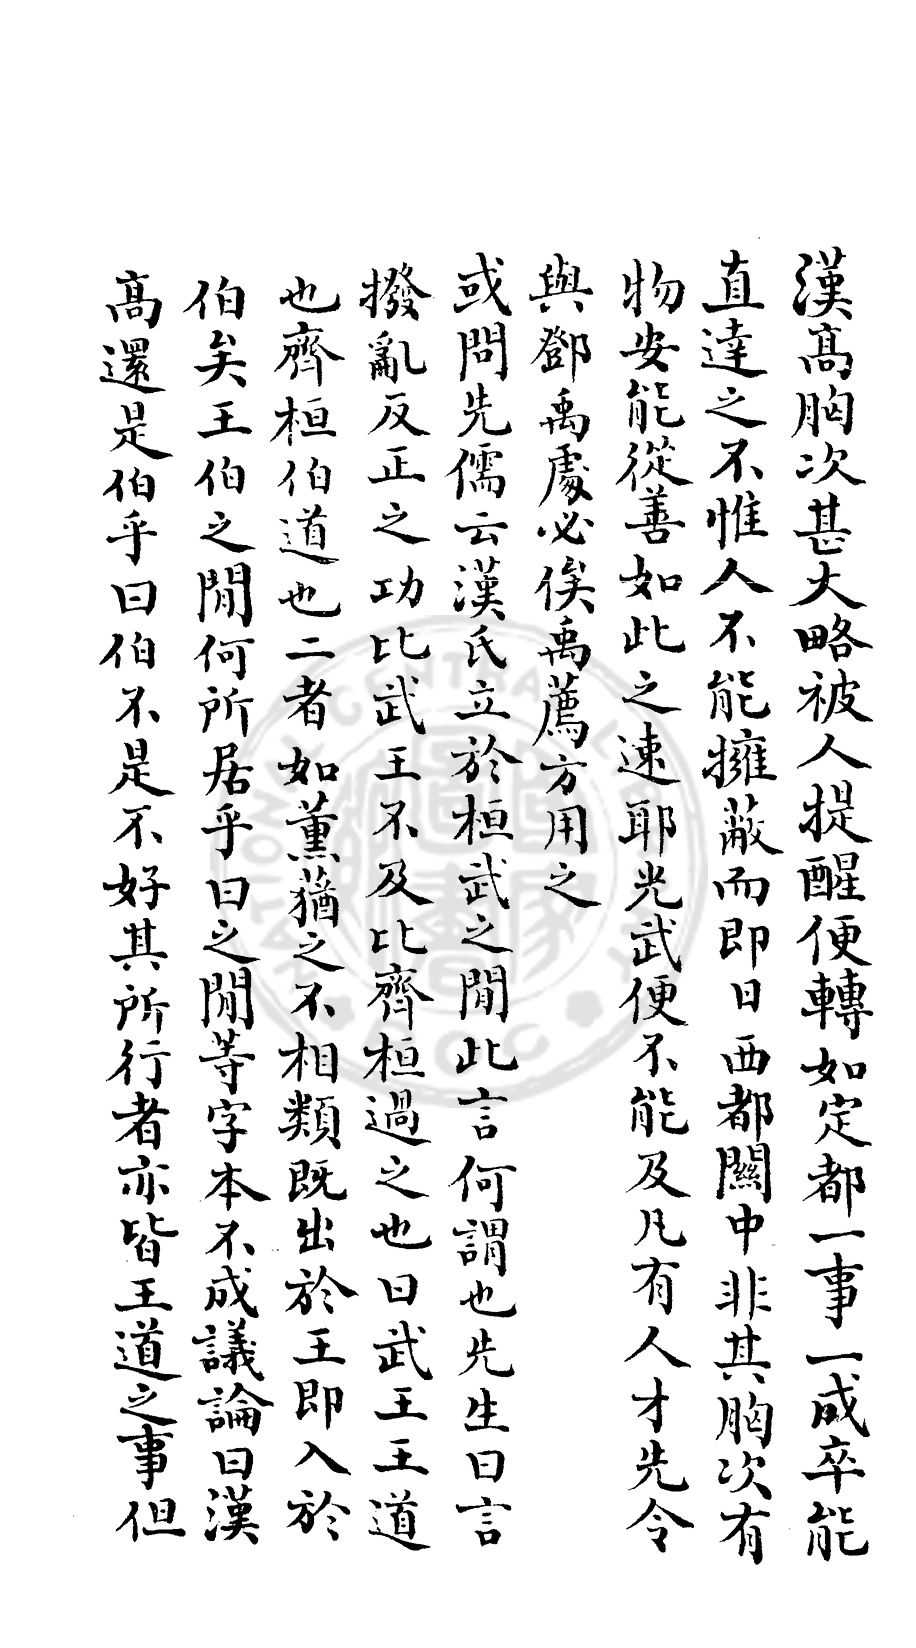 漢髙胸次甚大略被人提醒便轉如定都一事一戍卒能
直達之不惟人不能擁蔽而即日西都關中非其胸次有
物安能從善如此之速耶光武便不能及凡有人才先令
與鄧禹處必俟禹薦方用之
或問先儒云漢氏立於桓武之閒此言何謂也先生曰言
撥亂反正之功比武王不及比齊桓過之也曰武王王道
也齊桓伯道也二者如薰蕕之不相類既出於王即入於
伯矣王伯之閒何所居乎曰之閒等字本不成議論曰漢
髙還是伯乎曰伯不是不好其所行者亦皆王道之事但